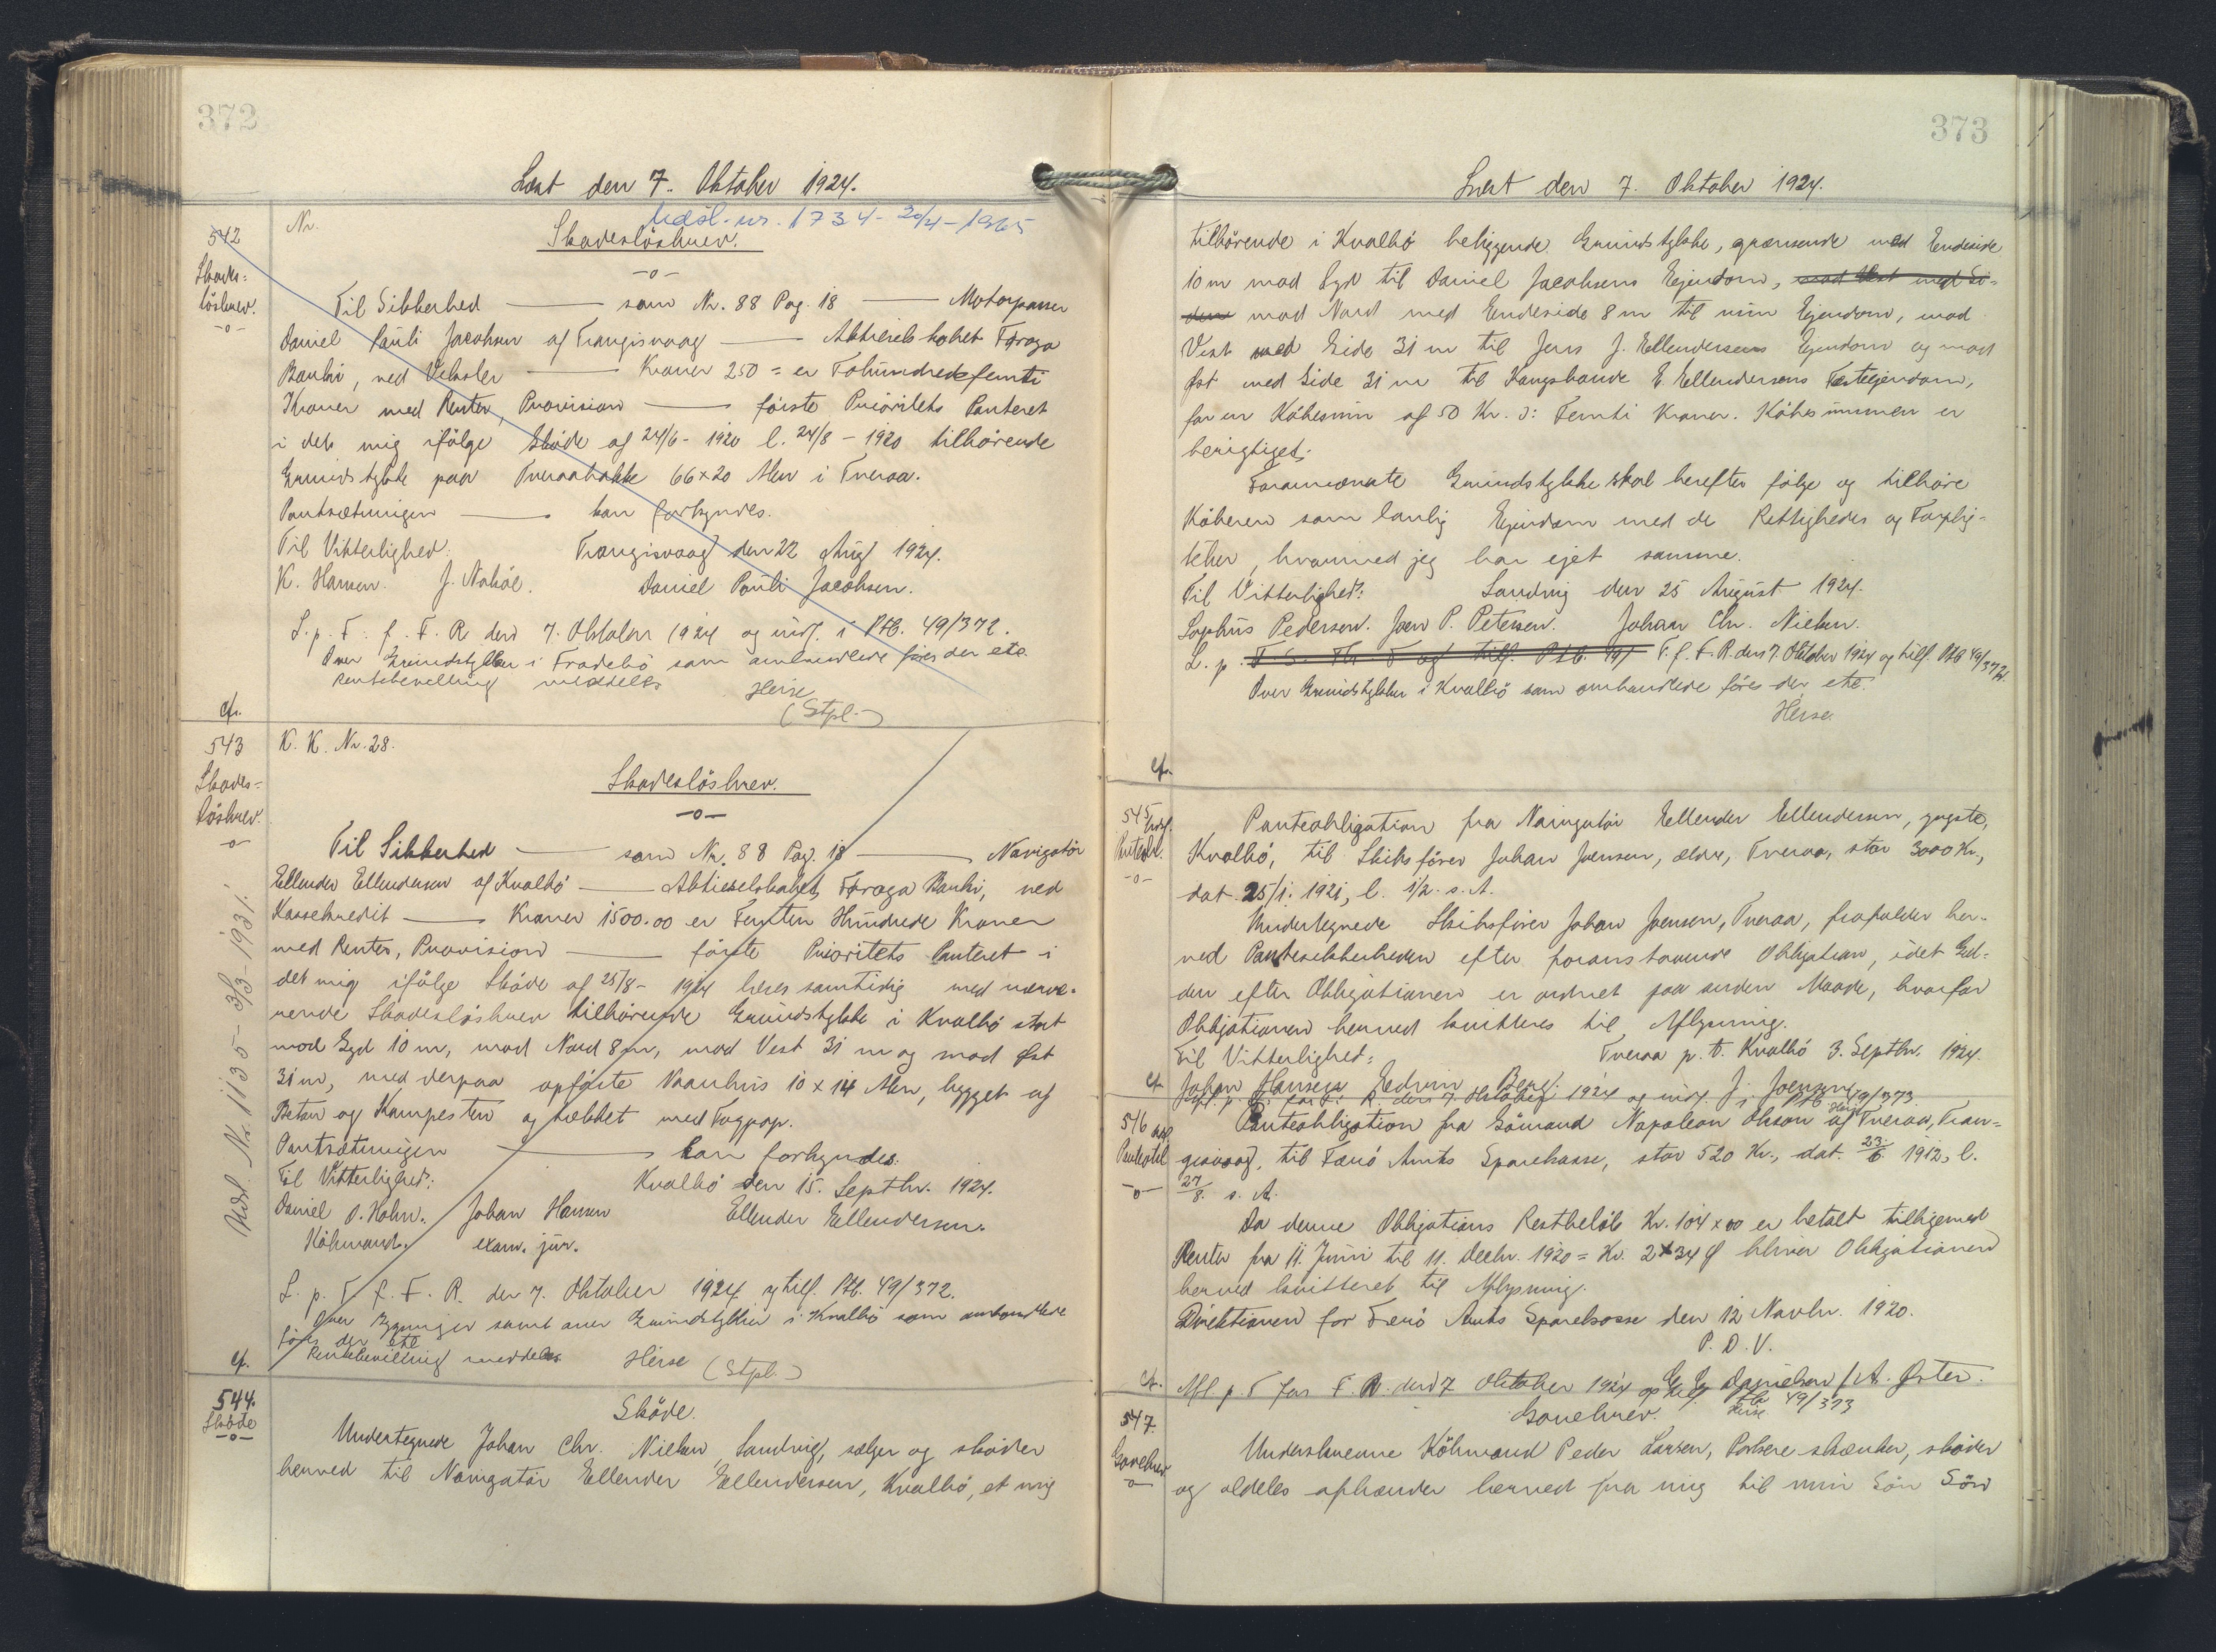 372
Læst den 7. Oktober 1924.
Udsl. nr. 1734 - 20/4 - 1965
Nr.
542
Skades=
löshrev.
-o-
Skadeslösbrev.
-o-
Til Sikkerhed — som Nr. 88 Pag. 18 — Motorpasser
Daniel Pauli Jacobsen af Trangisvaag — Aktieselskabet Føroya
Banki, ved Veksler — Kroner 250 = er Tohundredefemti
Kroner med Renter, Provision — förste Prioritets Panteret
i det mig ifölge Sköde af 24/6 - 1920 l. 24/8 - 1920 tilhörende
Grundstykke paa Tveraabakke 66 x 20 Alen i Tveraa.
Pantsætningen — kan forkyndes.
Til Vitterlighed: Trangisvaag den 22 Aug 1924.
K. Hansen. Daniel Pauli Jacobsen.
L. p. T. f. F. R. den 7. Oktober 1924 og indf. i Ptb. 49/372.
Over Grundstykker i Frodebö som anbmeldte föres der etc.
Rentebevilling meddeles Heise
(Stpl.)
cfr.
543
Skades-
löshrev.
-o-
K. K. Nr. 28.
Skadeslösbrev.
-o-
Til Sikkerhed — som Nr. 88 Pag. 18 — Navigatör
Ellender Ellendersen af Kvalbö — Aktieselskabet Föroya Banki, ved
Kassekredit — Kroner 1500.00 er Femten Hundrede Kroner
med Renter, Provision — förste Prioritets Panteret i
det mig ifölge Sköde af 25/8 - 1924 læses samtidig med nærvæ-
rende Skadeslösbrev tilhörende Grundstykke i Kvalbö stort
mod Syd 10 m, mod Nord 8 m, mod Vest 31 m og mod Öst
31 m, med derpaa opförte Vaanhus 10 x 14 Alen, bygget af
Beton og Kampesten og tækket med Tagpap.
Pantsætningen — kan forkyndes.
Til Vitterlighed: Kvalbö den 15. Septbr. 1924.
Daniel O. Holm. Johan Hansen Ellender Ellendersen.
Köbmand. exam. jur.
L. p. T. f. F. R. den 7. Oktober 1924 og tilf. Ptb. 49/372.
Over Bygninger samt over Grundstykker i Kvalbö som ombandlede
föres der etc
Rentebevilling meddeles Heise (Stpl.)
cfr.
Udsl. Nr. 1135 - 3/3 - 1931.
544.
Sköde
-o-
Sköde.
Undertegnede Johan Chr. Nielsen, Sandvig, sælger og sköder
herved til Navigatör Ellender Ellendersen, Kvalbö, et mig
373
Læst den 7. Oktober 1924.
tilhörende i Kvalbö beliggende Grundstykke, grænsende med Endeside
10 m mod Syd til Daniel Jacobsens Ejendom, mod Vest med Si-
den mod Nord med Endeside 8 m til min Ejendom, mod
Vest med Side 31 m til Jens J. Ellendersens Ejendom og mod
Öst med Side 31 m til Kongsbonde E. Ellendersens Fæsteejendom,
for en Köbesum af 50 Kr. ɔ: Femti Kroner. Köbesummen er
berigtiget.
Forannævnte Grundstykke skal herefter fölge og tilhöre
Köberen som lovlig Ejendom med de Rettigheder og Forplig-
telser, hvormed jeg har ejet samme.
Til Vitterlighed: Sandvig den 25 August 1924.
Sophus Pedersen. Joen P. Petersen. Johan Chr. Nielsen.
L. p. T. f. F. R. den 7. Oktober 1924 og tilf. Ptb 49/372/3.
Over Grundstykker i Kvalbö som omhandlede föres der etc.
Heise.
cfr.
545
Pantobl.
-o-
Panteobligation fra Navigatör Ellender Ellendersen, yngste,
Kvalbö, til Skibsförer Johan Joensen, ældre, Tveraa, stor 3000 Kr.,
dat. 25/1. 1921, l. 1/2. s. A.
Undertegnede Skibsförer Johan Joensen, Tveraa, frafalder her-
ved Pantesikkerheden efter foranstaaende Obligation, idet Gæl-
den efter Obligationen er ordnet paa anden Maade, hvorfor
Obligationen herved kvitteres til Aflysning.
Til Vitterlighed: Tveraa p. t. Kvalbö 3. Septbr. 1924.
Johan Hansen Edvin Berg. J. Joensen
Afl. p. T. for F. R. den 7 Oktober 1924 og indf. i Ptb 49/373.
Heise
cfr.
546
Panteobl
-o-
Panteobligation fra Sömand Napoleon Olsson af Tveraa, Tran-
gisvaag, til Færö Amts Sparekasse, stor 520 Kr., dat. 23/6 1912, l.
27/8. s. A.
Da denne Obligations Restbelöb Kr. 104 x 00 er betalt tilligemed
Renter fra 11. Juni til 11. Decbr. 1920 = Kr. 2 x 34 Ø bliver Obligationen
herved kvitteret til Aflysning.
Direktionen for Færö Amts Sparekasse den 12 Novbr. 1920.
P. D. V.
E. E. Danielsen / A. Öster.
Afl. p. T for F. R. den 7 Oktober 1924 og tilf. Ptb 49/373
Heise
cfr.
547.
Gavebrev
-o-
Gavebrev.
Underskrevne Köbmand Peder Larsen, Porkere skænker, sköder
og aldeles afhænder herved fra mig til min Sön Sön